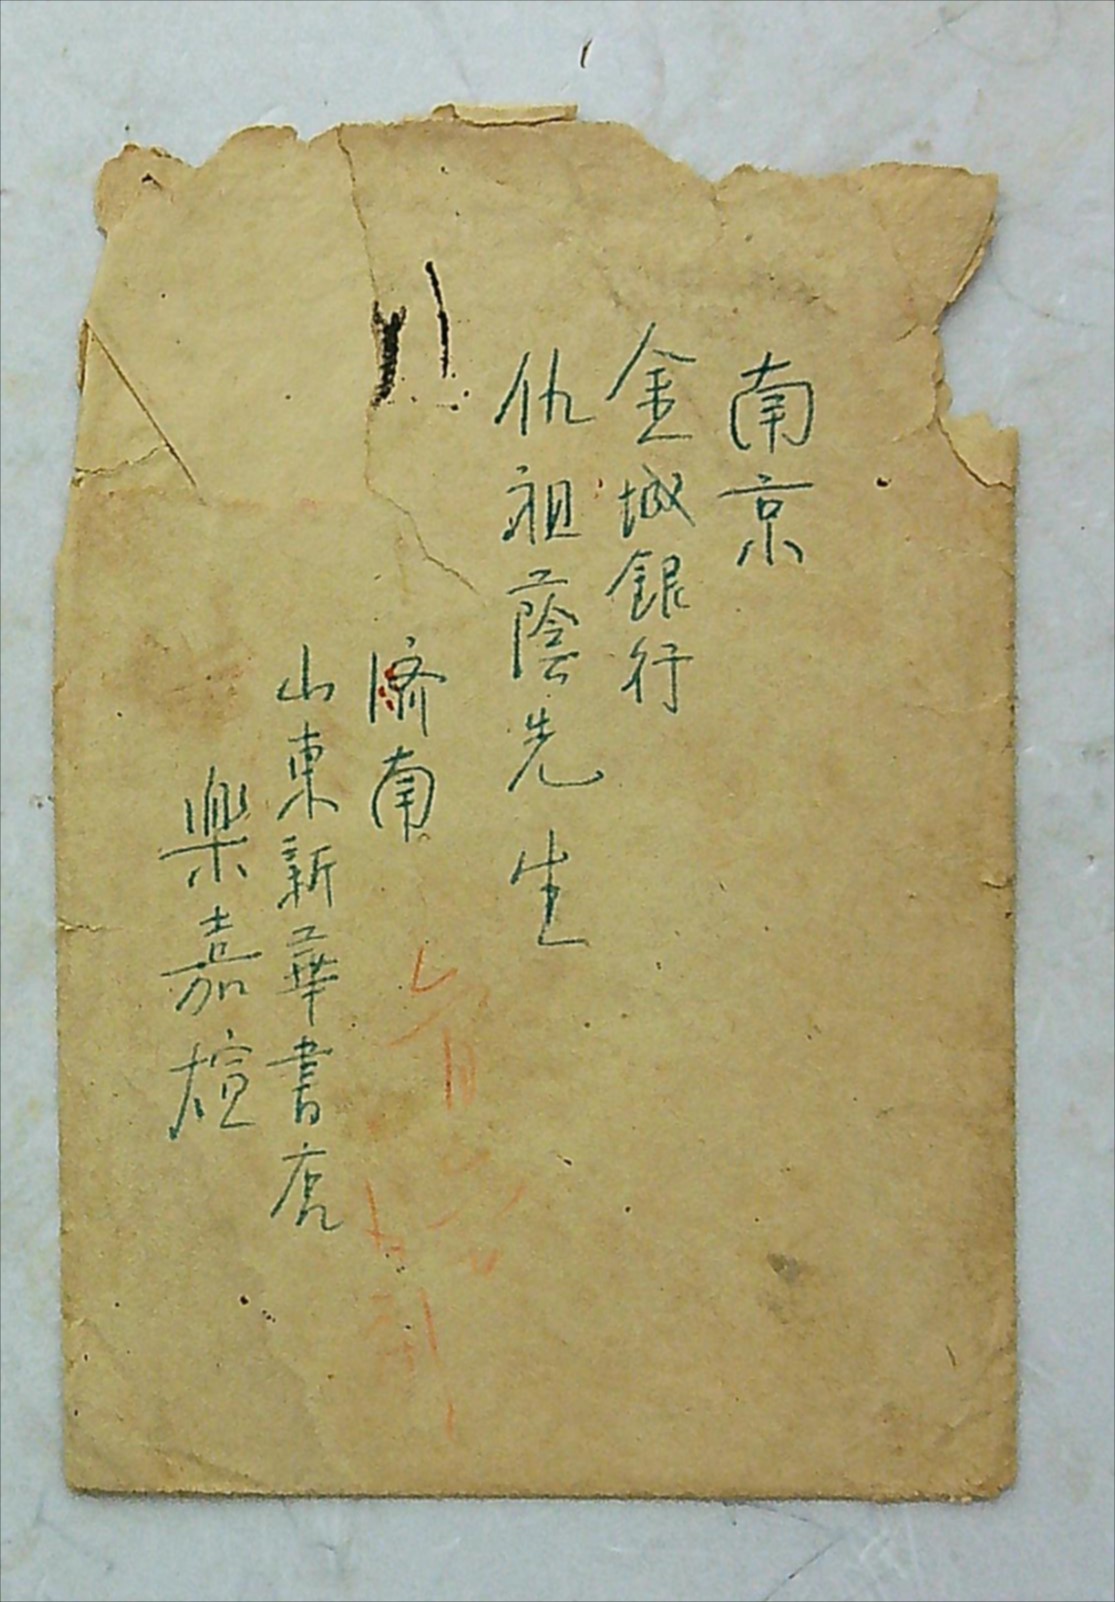 南京
金城銀行
仇祖蔭先生
濟南
山東新華書店
樂嘉煊